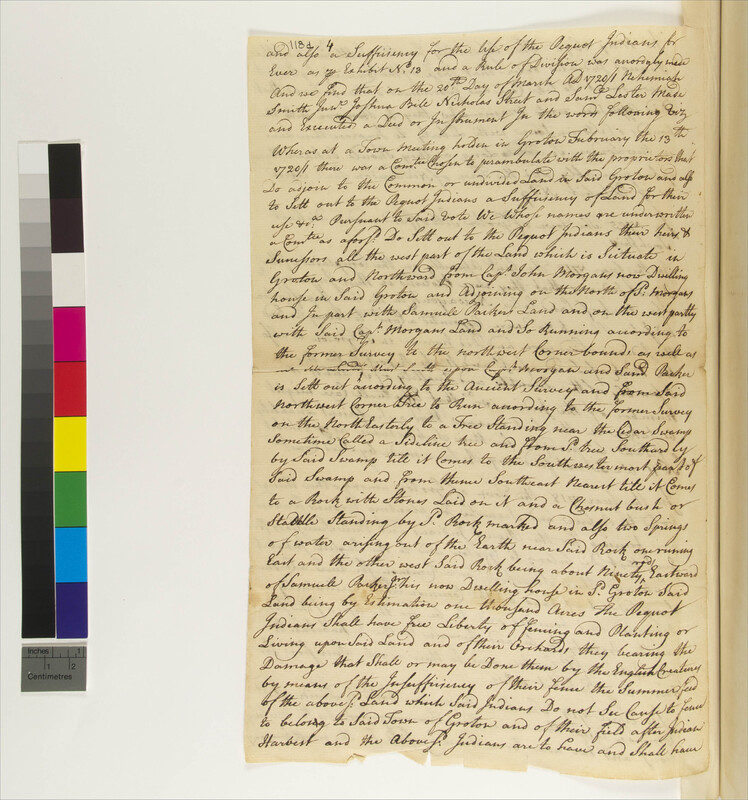 118d 4
and also a Suffisency for the use of the Pequot Indians for
Ever as pr Exhibit No. 13 and a Rule of Division was acordgly made
And we find that on the 20th Day of March AD 1720/1 Nehemiah
Smith Junr. Joshua Bill Nicholas Street and Saml. Lester Made
and Executed a Deed or Instrument In the words following viz
Wheras at a Town Meeting holden in Groton February the 13th
1720/1 there was a Comtee Chosen to perambulate with the proprietors that
Do adjoin to the Common or undivided Land in Said Groton and also
to Sett out to the Pequot Indians a Suffisency of Land for their
use &c. Pursuant to Said Vote We Whose names are underwritten
a Comtee as aforsd. Do Sett out to the Pequot Indians their heirs &
Sucessors all the west part of the Land which is Scituate in
Groton and Northward from Capt. John Morgans now Dwelling
house in Said Groton and Adjoining on the North of sd. Morgans
and In part with Samuel Parkers Land and on the west partly
with Said Capt. Morgans Land and So Running according to
the former Survey to the northwest Corner bounds as well as
Capt. Morgan and Saml. Parker
is Sett out according to the Ancient Survey and from Said
Northwest Corner Tree to Run according to the former Survey
on the North Easterly to a Tree Standing near the Cedar Swamp
Sometime Called a Sideline tree and from sd. tree Southardly
by Said Swamp till it Comes to the Southwestermost part of
Said Swamp and from thence Southeast Nearest till it Comes
to a Rock with Stones Laid on it and a Chesnut bush or
Staddle Standing by sd. Rock marked and also two Springs
of water arising out of the Earth near Said Rock one runing
East and the other west Said Rock being about Ninety rods Eastward
of Samuel Parker Jr. his now Dwelling house in sd. Groton Said
Land being by Estimation one thousand Acres the Pequot
Indians Shall have free Liberty of fencing and Planting or
Living upon Said Land and of their Orchards they bearing the
Damage that Shall or may be Done them by the English Creatures
by means of the Insuffisency of their fence the Summer feed
of the above sd. Land which Said Indians Do not See Cause to fence
to belong to Said Town of Groton and of their field after Indian
Harvest and the Above sd. Indians are to have and Shall have
Inches 1 2
Centimetres